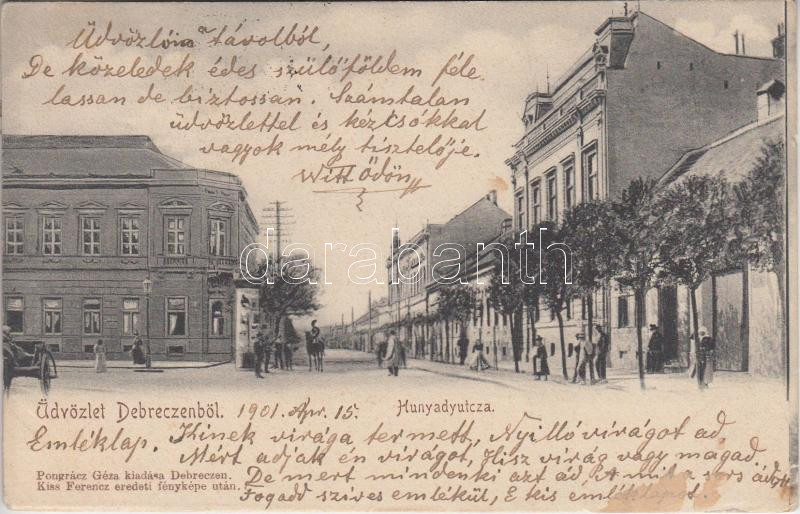 Üdvözlöm a távolból,
De közeledek édes szülőföldem féle
lassan de biztossan. Számtalan
üdvözlettel és kézcsókkal
vagyok mély tisztelője.
Witt Ödön
darabanth
Üdvözlet Debreczenböl. 1901. Apr. 15. Hunyadyutcza.
Emléklap. Kinek virága termett, Nyilló virágot ad,
Mért adjak én virágot, Hisz virág vagy magad.
Pongrácz Géza kiadása Debreczen. De mert mindenki azt ád, A mit a sors ád
Kiss Ferencz eredeti fényképe után. Fogadd szives emlékül, E kis emléklapot.